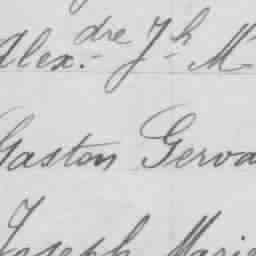 Alex.dre Jh M
Gaston Gerva
Joseph Marie